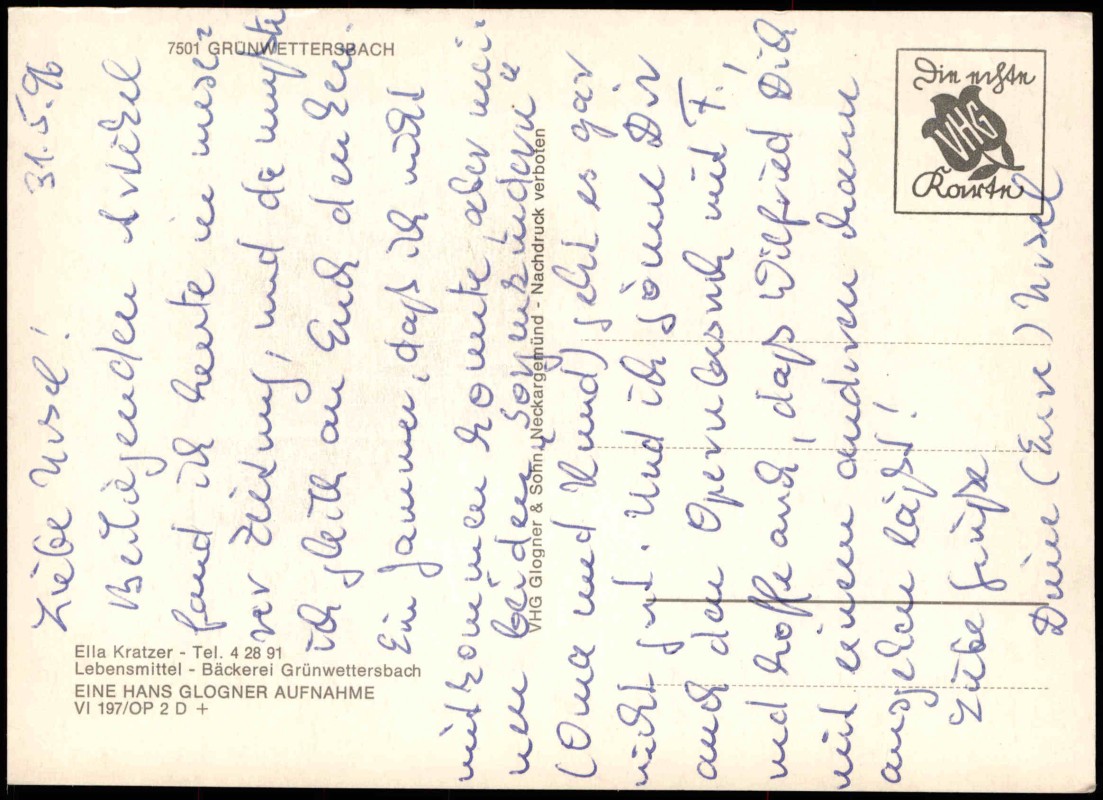 7501 GRÜNWETTERSBACH
Die echte
VHG
Karte
31.5.96
Liebe Ursel!
Beiliegenden Artikel
fand ich heute in unser
rer Zeitung und da mußte
ich gleich an Euch denken.
Ein Jammer, daß ich nicht
mitkommen konnte, aber mei-
nen beiden "Sorgenkindern"
(Oma und Hund) geht es gar
nicht gut. Und ich gönne Dir
auch den Opernbesuch mit F.
und hoffe auch, daß Wilfried Dich
mit einem anderen Mann
ausgehen läßt!
Liebe Grüße
Deine (Eure) Ursel
VHG Glogner & Sohn, Neckargemünd - Nachdruck verboten
Ella Kratzer - Tel. 4 28 91
Lebensmittel - Bäckerei Grünwettersbach
EINE HANS GLOGNER AUFNAHME
VI 197/OP 2 D +